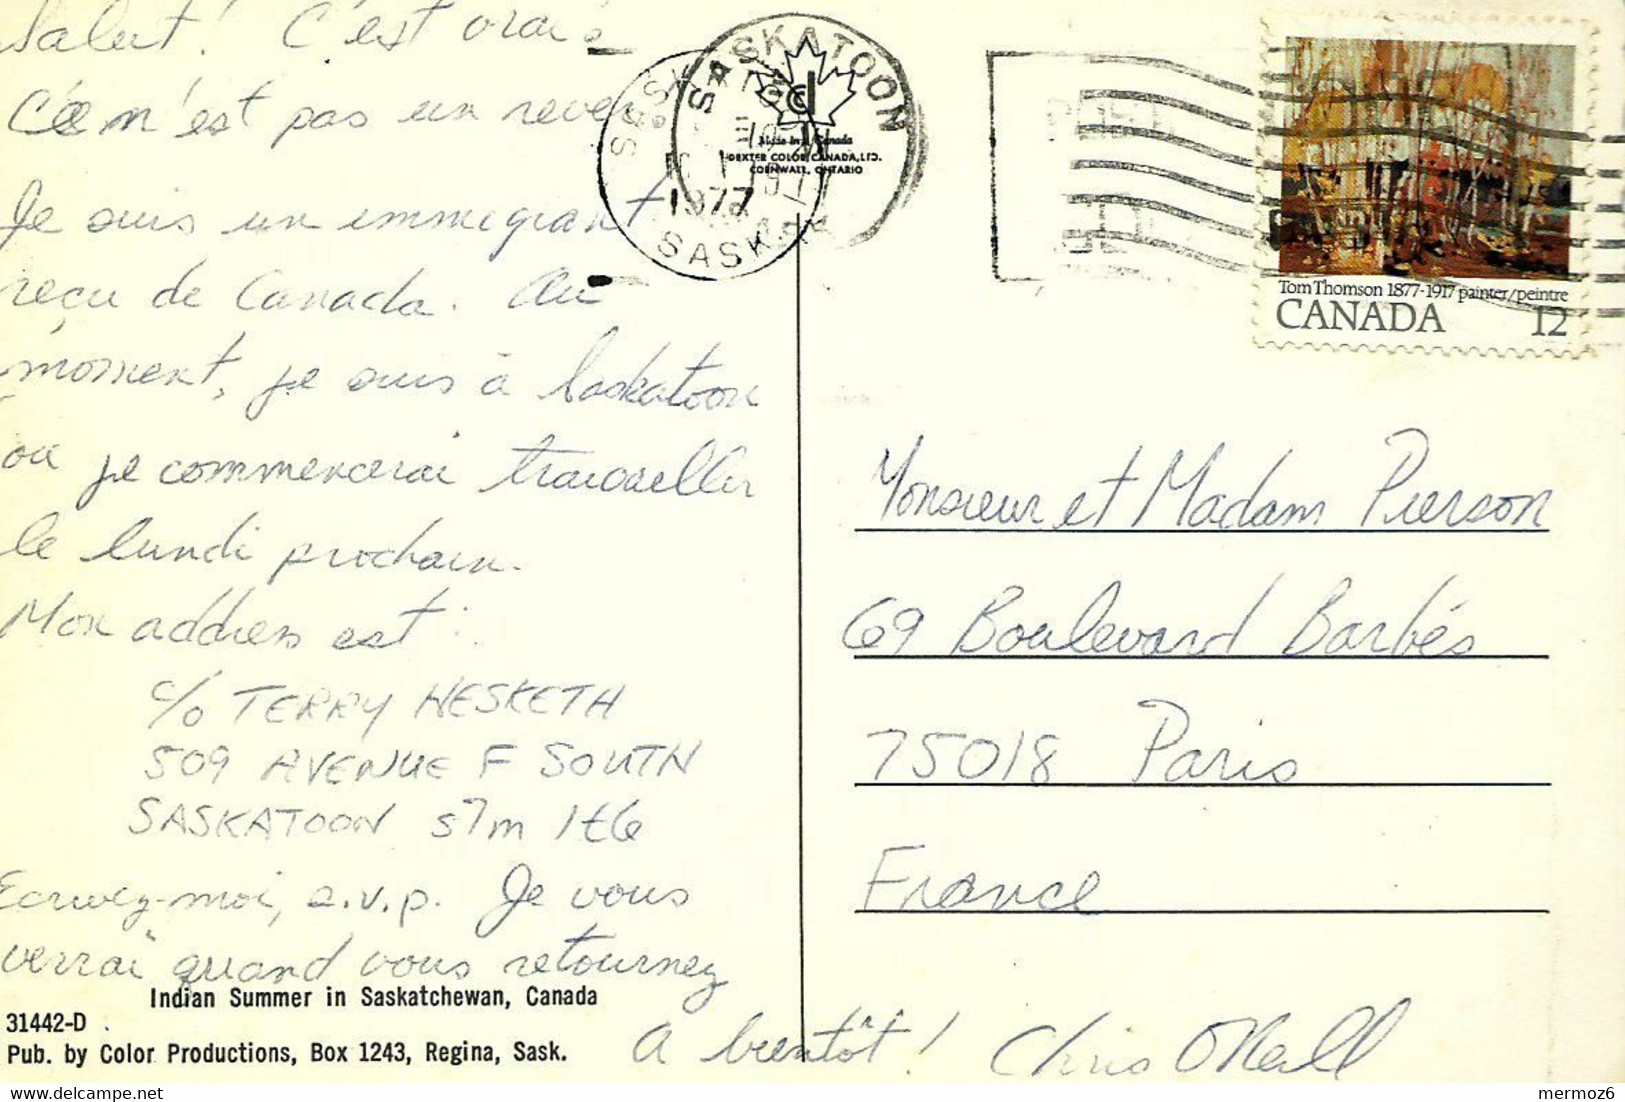 Salut! C'est vrai.
Ce n'est pas un rever
Je suis un immegrant
reçu de Canada. Au
moment, je suis à Saskatoon
ou je commencerai travailler
le lundi prochain.
Mon address est:
c/o TERRY HESKETH
509 AVENUE F SOUTH
SASKATOON S7m 1t6
Ecrivez-moi, s.v.p. Je vous
verrai quand vous retournez
A bientôt! Chris O'Neill
Indian Summer in Saskatchewan, Canada
31442-D
Pub. by Color Productions, Box 1243, Regina, Sask.
SASKATOON
1977
SASK.
Made in Canada
DEXTER COLOR CANADA, LTD.
CORNWALL, ONTARIO
Tom Thomson 1877-1917 painter/peintre
CANADA 12
Monsieur et Madam Pierson
69 Boulevard Barbés
75018 Paris
France
mermoz6